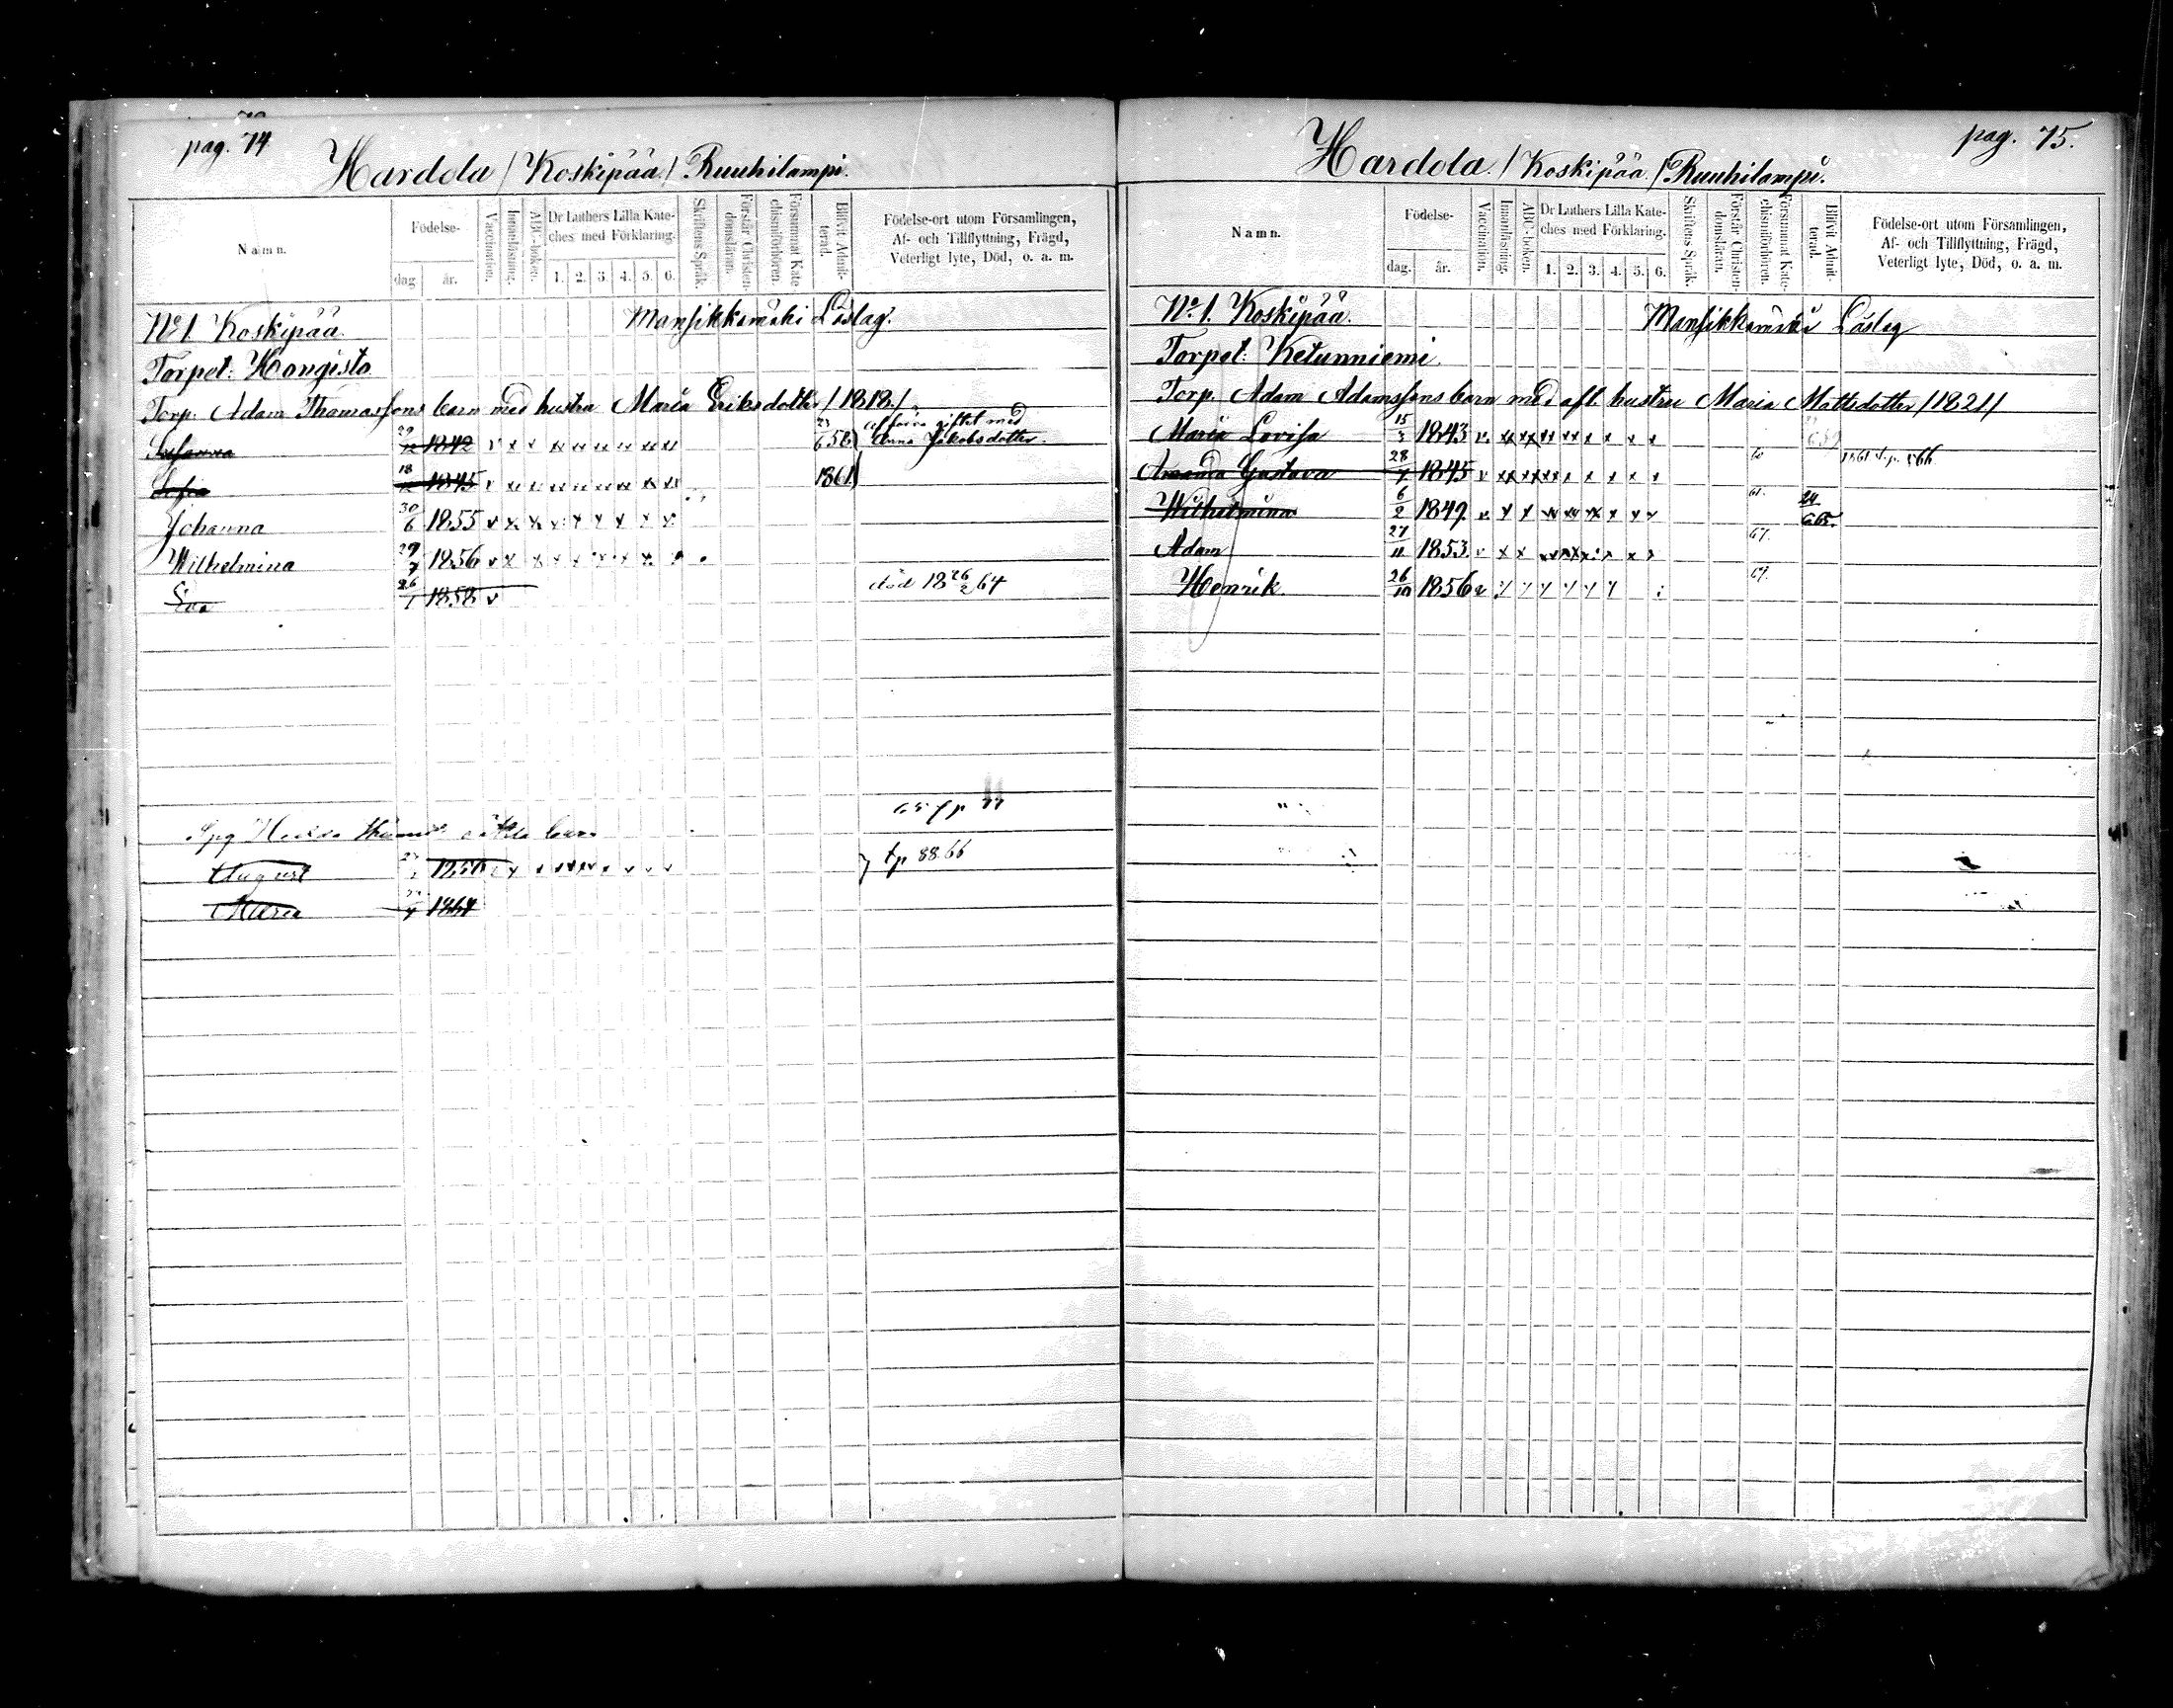 pag. 74
Hardola / Koskipää / Ruuhilampi.
Namn.
Födelse-
dag.
år.
Vaccination.
Innanläsning.
ABC-boken.
Dr Luthers Lilla Kate-
ches med Förklaring.
1. 2. 3. 4. 5. 6.
Skriftens Språk.
Förstår Christen-
domsläran.
Försummat Kate
chismiförhören.
Blifvit Admit-
terad.
Födelse-ort utom Församlingen,
Af- och Tillflyttning, Frägd,
Veterligt lyte, Död, o. a. m.
No 1. Koskipää. Mansikkamäki Läslag.
Torpet: Hongisto.
Torp. Adam Thomassons barn med hustru Maria Eriksdotter /1818./
Susanna 29/12 1842
giftet med
Anna Jakobsdotter.
Sofia 18/12 1845 1861
Johanna 30/6 1855
Wilhelmina 29/7 1856
Eva 26/1 1858 död 18 26/2 64
August tp 88.66
Maria 1864
pag. 75.
Hardola. / Koskipää. / Ruuhilampi.
Namn.
Födelse-
dag.
år.
Vaccination.
Innanläsning.
ABC-boken.
Dr Luthers Lilla Kate-
ches med Förklaring.
1. 2. 3. 4. 5. 6.
Skriftens Språk.
Förstår Christen-
domsläran.
Försummat Kate-
chismiförhören.
Blifvit Admit-
terad.
Födelse-ort utom Församlingen,
Af- och Tillflyttning, Frägd,
Veterligt lyte, Död, o. a. m.
No. 1. Koskipää. Mansikkamäki Läslag
Torpet: Ketunniemi
Torp. Adam Adamssons barn med afl. hustru Maria Mattsdotter /1821/
Maria Lovisa 15/3 1843
Amanda Gustava 28/7 1845
Wilhelmina 6/2 1849 61.
Adam 27/11 1853 67.
Henrik 26/10 1856 67.